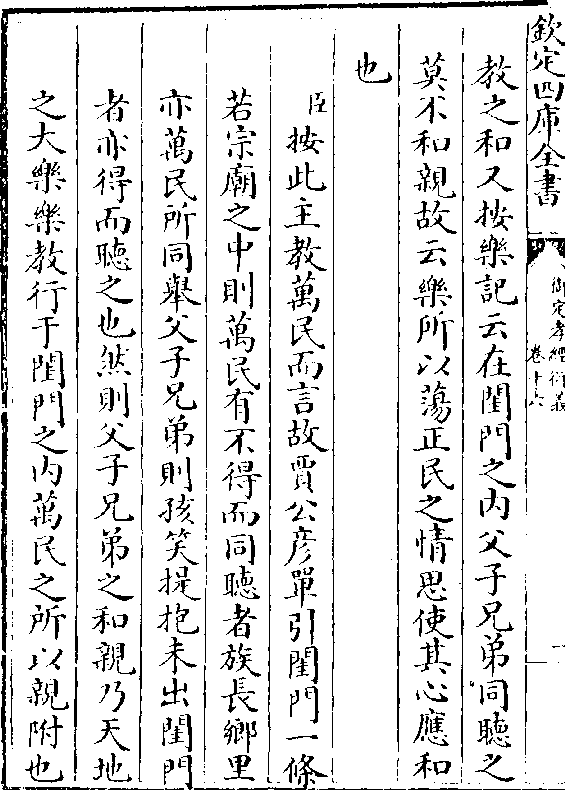 欽定四庫全書
御定孝經衍義
卷十六
教之和又按樂記云在閨門之内父子兄弟同聽之
莫不和親故云樂所以蕩正民之情思使其心應和
也
臣按此主教萬民而言故賈公彦單引閨門一條
若宗廟之中則萬民有不得而同聽者族長鄉里
亦萬民所同舉父子兄弟則孩笑提抱未出閨門
者亦得而聽之也然則父子兄弟之和親乃天地
之大樂樂教行于閨門之内萬民之所以親附也